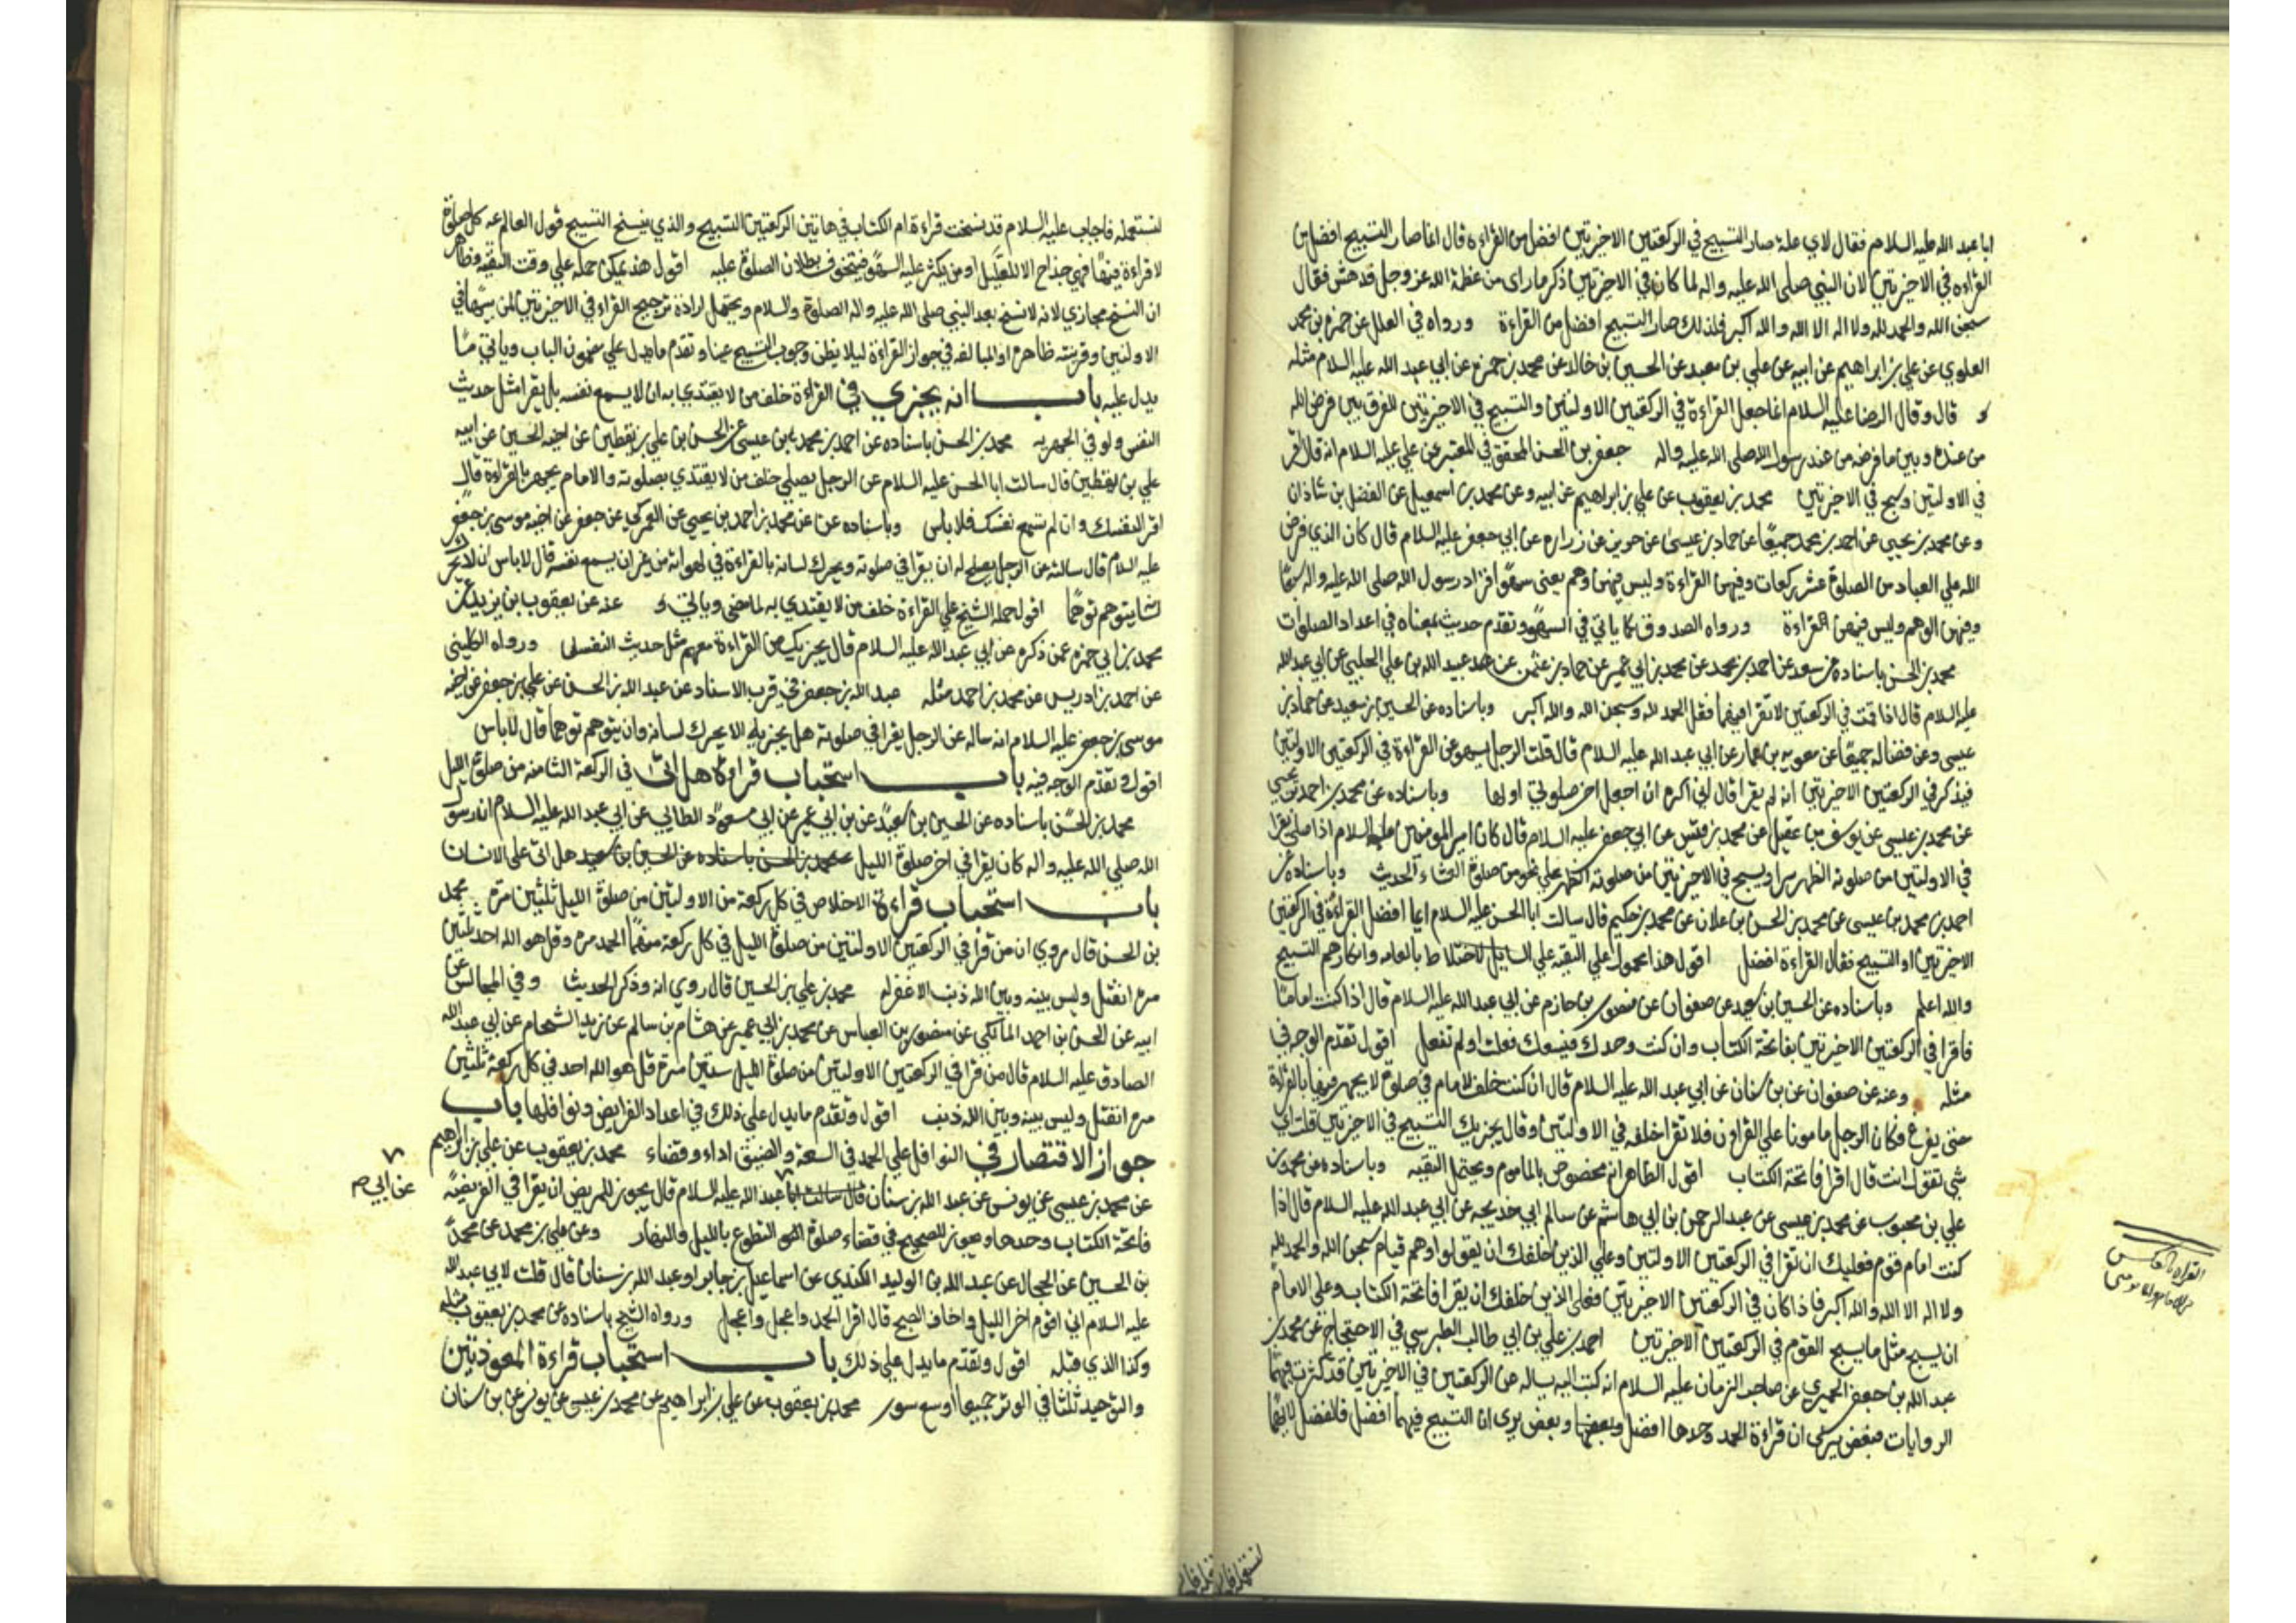 ابا عبد الله عليه السلام فقال لاي علة صار التسبيح في الركعتين الاخيرتين افضل من القراءة قال انما صار التسبيح افضل من
القراءة في الاخيرتين لان النبي صلى الله عليه واله لما كان في الاخيرتين ذكر ما راى من عظمة الله عز وجل فدهش فقال
سبحن الله والحمد لله ولا اله الا الله والله اكبر فلذلك صار التسبيح افضل من القراءة ورواه في العلل عن حمزه بن محمد
العلوي عن علي بن ابراهيم عن ابيه عن علي بن معبد عن الحسين بن خالد عن محمد بن حمزه عن ابي عبد الله عليه السلام مثله
قال وقال الرضا عليه السلام انما جعل القراءة في الركعتين الاولتين والتسبيح في الاخيرتين للفرق بين ما فرض الله
من عنده وبين ما فرضه من عند رسول الله صلى الله عليه واله جعفر بن الحسن المحقق في المعتبر عن علي عليه السلام انه قال اقر
في الاولتين وسبح في الاخيرتين محمد بن يعقوب عن علي بن ابراهيم عن ابيه وعن محمد بن اسمعيل عن الفضل بن شاذان
وعن محمد بن يحيى عن احمد بن محمد جميعا عن حماد بن عيسى عن حريز عن زراره عن ابي جعفر عليه السلام قال كان الذي فرض
الله على العباد من الصلوة عشر ركعات وفيهن القراءة وليس فيهن وهم يعني سهوا فزاد رسول الله صلى الله عليه واله سبعا
وفيهن الوهم وليس فيهن القراءة ورواه الصدوق كما ياتي في السهو وتقدم حديث بمعناه في اعداد الصلوات
محمد بن الحسن باسناده عن سعد عن احمد بن محمد عن محمد بن ابي عمير عن حماد بن عثمن عن عبيد الله بن علي الحلبي عن ابي عبد الله
عليه السلام قال اذا قمت في الركعتين لا تقرا فيهما فقل الحمد لله وسبحن الله والله اكبر وباسناده عن الحسين بن سعيد عن حماد بن
عيسى وعن فضاله جميعا عن معويه بن عمار عن ابي عبد الله عليه السلام قال قلت الرجل يسهو عن القراءة في الركعتين الاولتين
فيذكر في الركعتين الاخيرتين انه لم يقرا قال اني اكره ان اجعل اخر صلوتي اولها وباسناده عن محمد بن احمد بن يحيى
عن محمد بن عيسى عن يوسف بن عقيل عن محمد بن قيس عن ابي جعفر عليه السلام قال كان امير المومنين عليه السلام اذا صلى يقرا
في الاولتين من صلوته الظهر سرا ويسبح في الاخيرتين من صلوته الظهر على نحو من صلوة العشاء الحديث وباسناده عن
احمد بن محمد بن عيسى عن محمد بن الحسن بن علان عن محمد بن حكيم قال سالت ابا الحسن عليه السلام ايما افضل القراءة في الركعتين
الاخيرتين او التسبيح فقال القراءة افضل اقول هذا محمول على التقيه على السايل لاختلاط بالعامه وانكارهم التسبيح
والله اعلم وباسناده عن الحسين بن سعيد عن صفوان عن منصور بن حازم عن ابي عبد الله عليه السلام قال اذا كنت اماما
فاقرا في الركعتين الاخيرتين بفاتحة الكتاب وان كنت وحدك فيسعك فعلت او لم تفعل اقول تقدم الوجه في
مثله وعنه عن صفوان عن بن سنان عن ابي عبد الله عليه السلام قال ان كنت خلف الامام في صلوة لا يجهر فيها بالقراءة
حتى يفرغ وكان الرجل مامونا على القران فلا تقرا خلفه في الاولتين وقال يجزيك التسبيح في الاخيرتين قلت اي
شي تقول انت قال اقرا فاتحة الكتاب اقول الظاهر انه مخصوص بالماموم ويحتمل التقيه وباسناده عن محمد بن
علي بن محبوب عن محمد بن عيسى عن عبد الرحمن بن ابي هاشم عن سالم ابي خديجه عن ابي عبد الله عليه السلام قال اذا
كنت امام قوم فعليك ان تقرا في الركعتين الاولتين وعلى الذين خلفك ان يقولوا وهم قيام سبحن الله والحمد لله
ولا اله الا الله والله اكبر فاذا كان في الركعتين الاخيرتين فعلى الذين خلفك ان يقرا فاتحة الكتاب وعلى الامام
ان يسبح مثل ما يسبح القوم في الركعتين الاخيرتين احمد بن علي بن ابي طالب الطبرسي في الاحتجاج عن محمد بن
عبد الله بن جعفر الحميري عن صاحب الزمان عليه السلام انه كتب اليه يساله عن الركعتين في الاخيرتين قد كثرت فيهما
الروايات فبعض يرى ان قراءة الحمد وحدها افضل وبعض يرى ان التسبيح فيهما افضل فالفضل لايهما
لنستعمله فاجاب عليه السلام قد نسخت قراءة ام الكتاب في هاتين الركعتين التسبيح والذي ينسخ التسبيح قول العالم عه كل صلوة
لا قراءة فيها فهي خداج الا للعليل او من يكثر عليه السهو فيتخوف بطلان الصلوة عليه اقول هذا يمكن حمله على وقت التقيه وظاهر
ان النسخ مجازي لانه لا نسخ بعد النبي صلى الله عليه واله الصلوة والسلام ويحتمل ارادة ترجيح القراءة في الاخيرتين لمن يسهها في
الاولتين وقرينته ظاهره او المبالغه في جواز القراءة ليلا يظن وجوب التسبيح عينا وتقدم ما يدل على مضمون الباب وياتي ما
يدل عليه باب انه يجزي في القراءة خلف من لا يقتدي به ان لا يسمع نفسه بل يقرا مثل حديث
النفس ولو في الجهريه محمد بن الحسن باسناده عن احمد بن محمد بن عيسى عن الحسن بن علي بن يقطين عن اخيه الحسين عن ابيه
علي بن يقطين قال سالت ابا الحسن عليه السلام عن الرجل يصلي خلف من لا يقتدي بصلوته والامام يجهر بالقراءة قال
اقرا لنفسك وان لم تسمع نفسك فلا باس وباسناده عن محمد بن احمد بن يحيى عن العمركي عن علي بن جعفر عن اخيه موسى بن جعفر
عليه السلام قال سالته عن الرجل يصلح له ان يقرا في صلوته ويحرك لسانه بالقراءة في لهواته من غير ان يسمع نفسه قال لا باس ان لا يحرك
لسانه يتوهم توهما اقول حمله الشيخ على القراءة خلف من لا يقتدي به لما مضى وياتي وعنه عن يعقوب بن يزيد عن
محمد بن ابي حمزه عمن ذكره عن ابي عبد الله عليه السلام قال يجزيك من القراءة معهم مثل حديث النفس ورواه الكليني
عن احمد بن ادريس عن محمد بن احمد مثله عبد الله بن جعفر في قرب الاسناد عن عبد الله بن الحسن عن علي بن جعفر عن اخيه
موسى بن جعفر عليه السلام انه ساله عن الرجل يقرا في صلوته هل يجزيه الا يحرك لسانه وان يتوهم توهما قال لا باس
اقول وتقدم الوجه فيه باب استحباب قراءة هل اتى في الركعة الثامنه من صلوة الليل
محمد بن الحسن باسناده عن الحسين بن سعيد عن بن ابي عمير عن ابي مسعود الطائي عن ابي عبد الله عليه السلام ان رسول
الله صلى الله عليه واله كان يقرا في اخر صلوة الليل هل اتى على الانسان
باب استحباب قراءة الاخلاص في كل ركعة من الاولتين من صلوة الليل ثلثين مرة محمد
بن الحسن قال روي ان من قرا في الركعتين الاولتين من صلوة الليل في كل ركعة منهما الحمد مره وقل هو الله احد ثلثين
مره انفتل وليس بينه وبين الله ذنب الا غفر له محمد بن علي بن الحسين قال روي انه وذكر الحديث وفي المجالس عن
ابيه عن الحسن بن احمد المالكي عن منصور بن العباس عن محمد بن ابي عمير عن هشام بن سالم عن زيد الشحام عن ابي عبد الله
الصادق عليه السلام قال من قرا في الركعتين الاولتين من صلوة الليل ستين مرة قل هو الله احد في كل ركعة ثلثين
مره انفتل وليس بينه وبين الله ذنب اقول وتقدم ما يدل على ذلك في اعداد الفرايض ونوافلها باب
جواز الاقتصار في النوافل على الحمد في السعة والضيق اداء وقضاء محمد بن يعقوب عن علي بن ابراهيم
عن محمد بن عيسى عن يونس عن عبد الله بن سنان عن ابي عبد الله عليه السلام قال يجوز للمريض ان يقرا في الفريضة
فاتحة الكتاب وحدها ويجوز للصحيح في قضاء صلوة التطوع بالليل والنهار وعن علي بن محمد عن محمد
بن الحسين عن الحجال عن عبد الله بن الوليد الكندي عن اسماعيل بن جابر او عبد الله بن سنان قال قلت لابي عبد الله
عليه السلام اني اقوم اخر الليل واخاف الصبح قال اقرا الحمد واعجل واعجل ورواه الشيخ باسناده عن محمد بن يعقوب مثله
وكذا الذي قبله اقول وتقدم ما يدل على ذلك باب استحباب قراءة المعوذتين
والتوحيد ثلثا في الوتر جميعا او تسع سور محمد بن يعقوب عن علي بن ابراهيم عن محمد بن عيسى عن يونس عن بن سنان
عن ابي صح
لنستعمله فاجاب